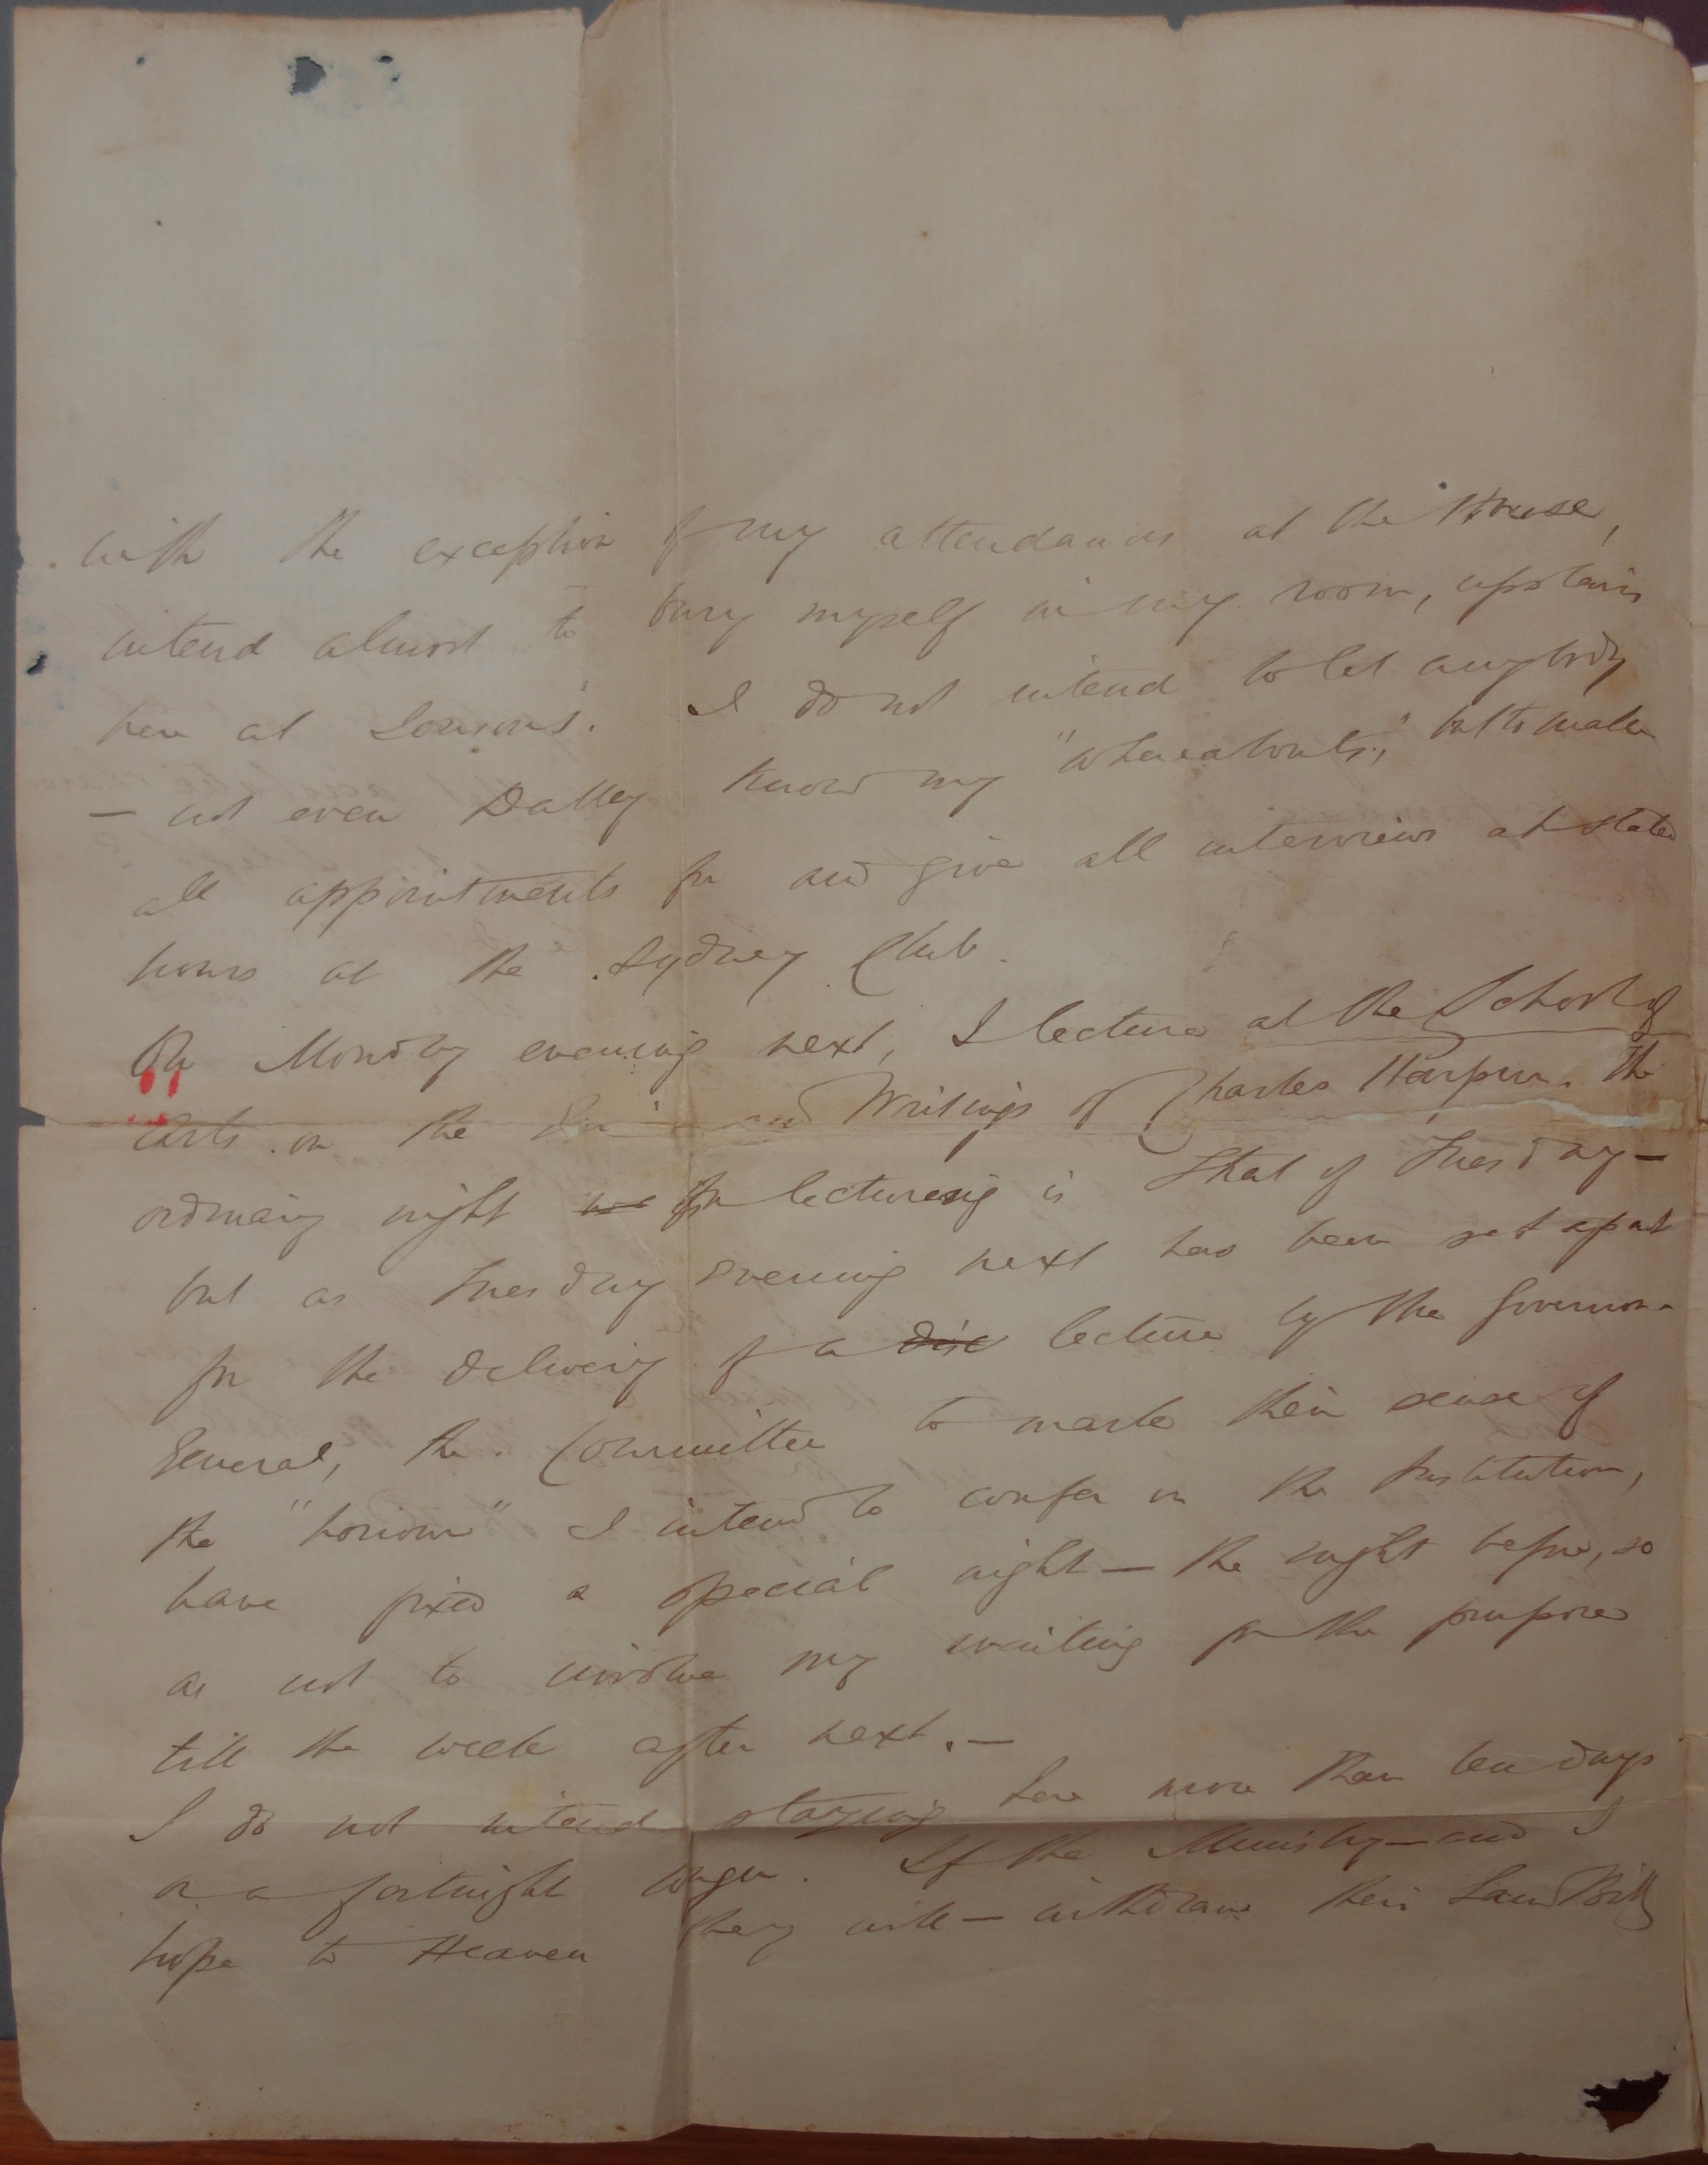 with the exception of my attendances at the House,
intend almost to bury myself in my room, upstairs
here at . I do not intend to let anybody
— not even Dalley know my "whereabouts," but to make
all appointments for and give all interviews at stated
hours at the Sydney Club.
On Monday evening next, I lecture at the School of
Arts on the and Writings of Charles Harpur. The
ordinary night for lectureing is that of Tuesday —
but as Tuesday evening next has been set apart
for the delivery of a lecture by the Governor-
General, the Committee to mark their sense of
the "honour" I intend to confer on the Institution,
have fixed a special night — the night before, so
as not to involve my waiting for the purpose
till the week after next. —
I do not intend staying here more than ten days
or a fortnight longer. If the Ministry — and I
hope to Heaven they will — withdraw their Land Bill